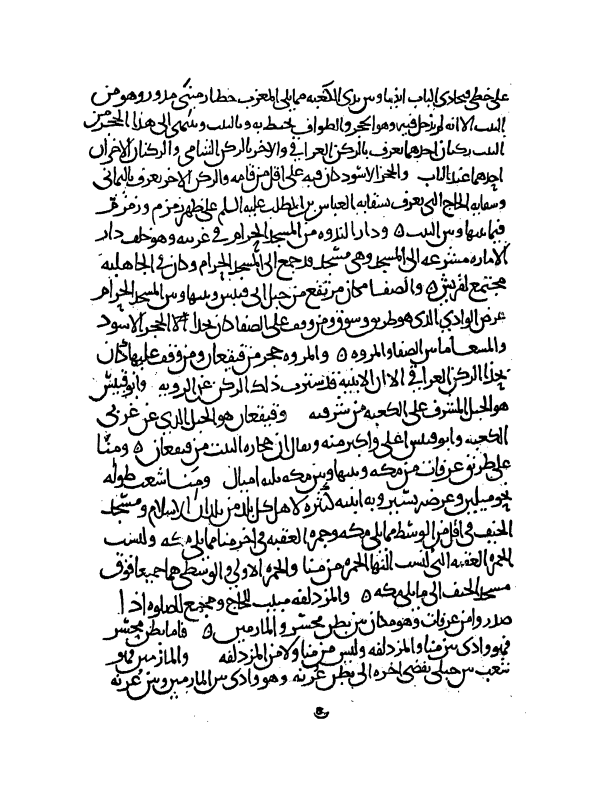 على خطى فيحاذى الباب انها وبين يدى الكعبه مما يلى المغرب حطار مبنى مدور وهو من
البيت الا انه لم يدخل فيه وهو الحجر والطواف يحيط به وبالبيت وينتهى الى هذا الحجر من
البيت ركنان احدهما يعرف بالركن العراقى والاخر بالركن الشامى والركنان الاخران
احدهما عند الباب والحجر الاسود كان فيه على اقل من قامه والركن الاخر يعرف باليمانى
وسقايه الحاج التى تعرف بسقايه العباس بن المطلب عليه السلم على ظهر زمزم وزمزم
فيما بينها وبين البيت ودار الندوه من المسجد الحرام فى غربيه وهو خلف دار
الاماره مشرعه الى المسجد وهى مسجد قد جمع الى المسجد الحرام وكان فى الجاهليه
مجتمع لقريش والصفا مكان مرتفع من جبل ابى قبيس وبينها وبين المسجد الحرام
عرض الوادى الذى هو طريق وسوق ومن وقف على الصفا كان بحذا الحجر الاسود
والمسعا ما بين الصفا والمروه والمروه حجر من قيقعان ومن وقف عليها كان
بحذا الركن العراقى الا ان الابنيه قد سترت ذلك الركن عن الرويه وابو قبيس
هو الجبل المشرف على الكعبه من شرقيه وقيقعان هو الجبل الذى عن غربى
الكعبه وابو قبيس اعلى واكبر منه ويقال ان حجاره البيت من قيقعان ومنا
على طريق عرفات من مكه وبينها وبين مكه ثلثه اميال ومنا شعب طوله
نحو ميلين وعرضه يسير وبه ابنيه كثيره لاهل كل بلد من بلدان الاسلام ومسجد
الخيف فى اقل من الوسط مما يلى مكه وجمره العقبه فى اخر منا مما يلى مكه وليست
الجمره العقبه التى تنسب اليها الجمره من منا والجمره الاولى والوسطى هما جميعا فوق
مسجد الخيف الى ما يلى مكه والمزدلفه مبيت للحاج ومجمع للصلوه اذا
صدروا من عرفات وهو مكان بين بطن محسر والمازمين فاما بطن محسر
فهو وادى بين منا والمزدلفه وليس من منا ولا من المزدلفه والمازمين فهو
شعب بين جبلين يفضى اخره الى بطن عرنه وهو وادى بين المازمين وبين عرفه